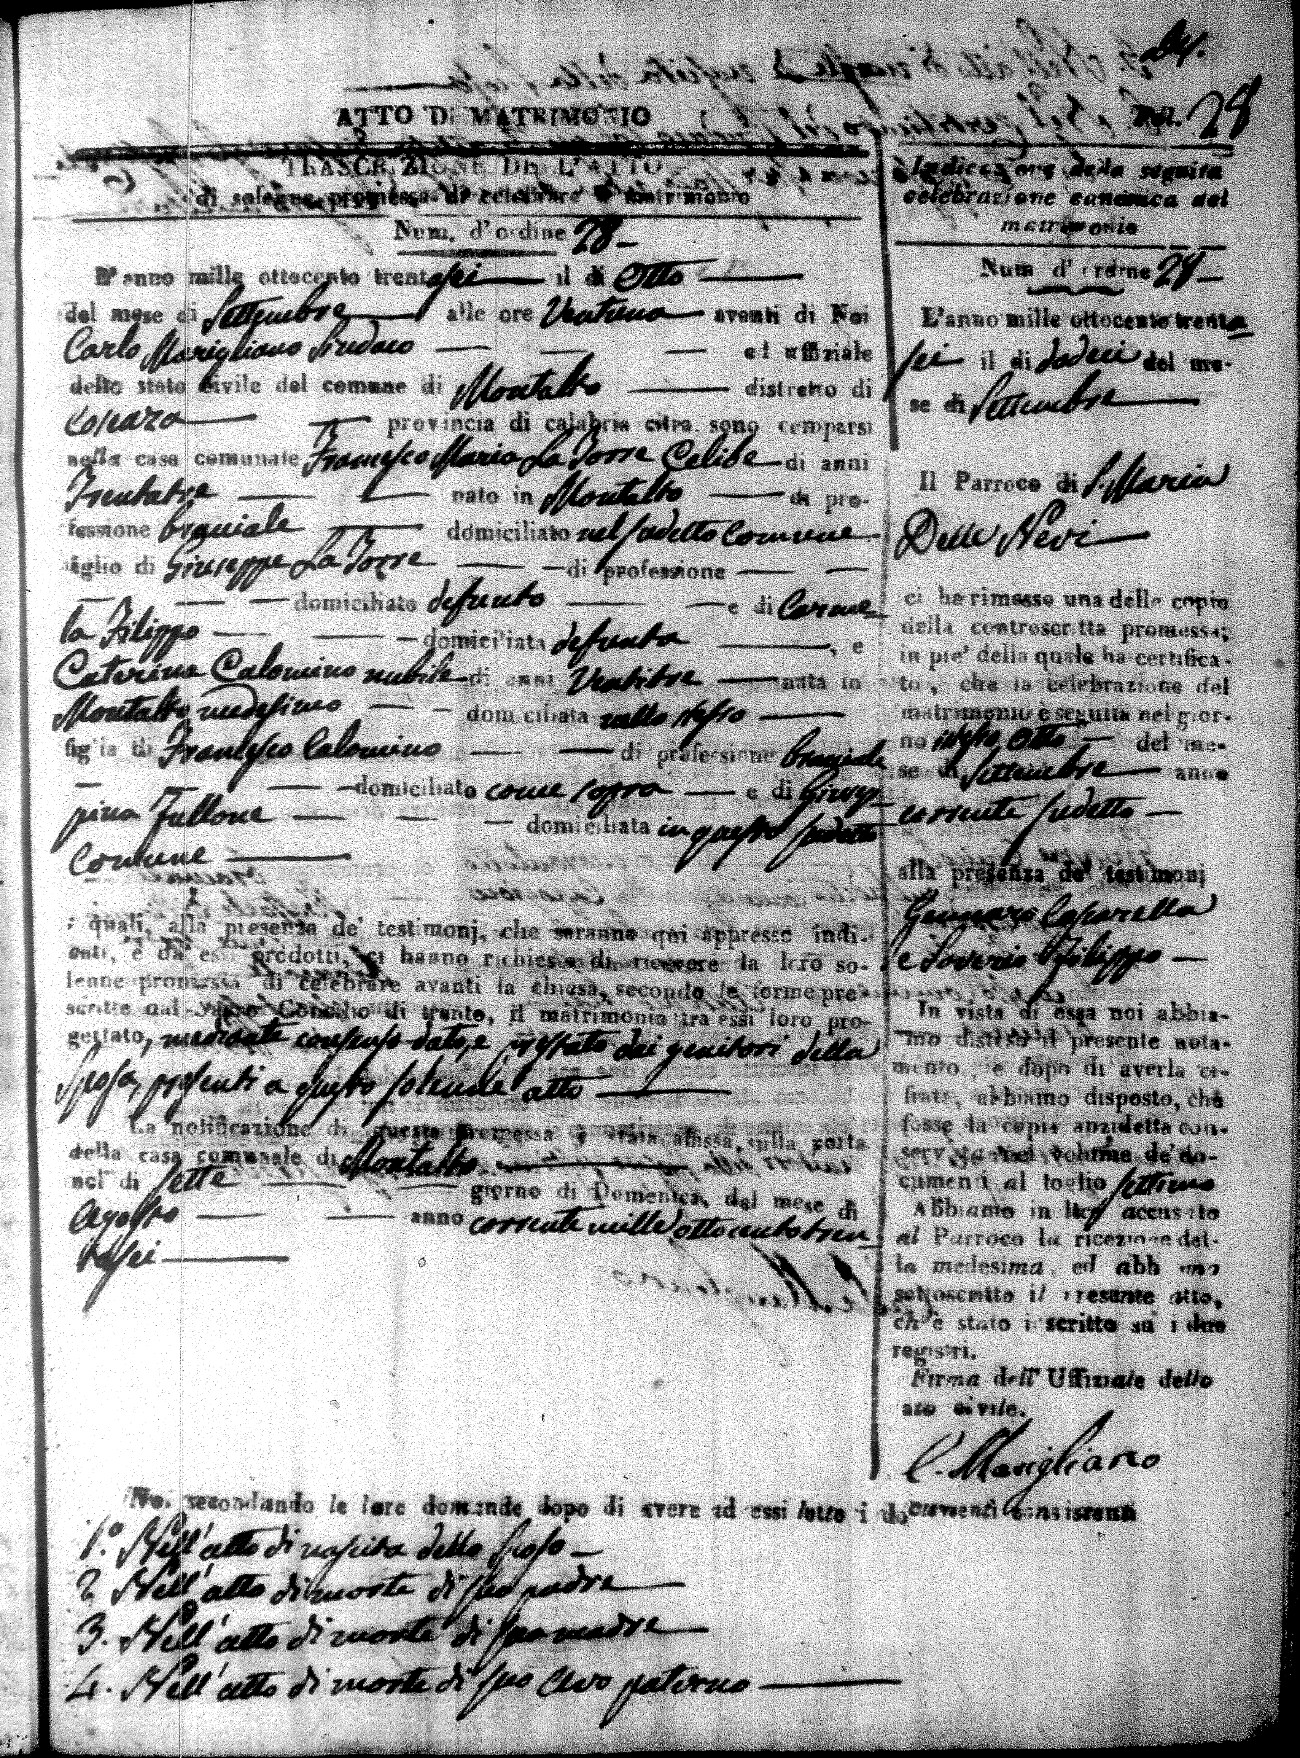 24.
num. 28
ATTO DI MATRIMONIO
TRASCRIZIONE DELL'ATTO
di solenne promessa di celebrare il matrimonio
Num. d'ordine 28
L'anno mille ottocento trentasei il dì Otto
del mese di Settembre alle ore Ventuna avanti di Noi
Carlo Marigliano Sindaco ed uffiziale
dello stato civile del comune di Montalto distretto di
Cosenza provincia di calabria citra. sono comparsi
nella casa comunale Francesco Maria La Torre Celibe di anni
Trentatre nato in Montalto di pro-
fessione braciale domiciliato nel sudetto Comune
figlio di Giuseppe La Torre di professione
domiciliato defunto e di Carme
la Filippo domiciliata defunta , e
Caterina Calomino nubile di anni Ventitre nata in
Montalto medesimo domiciliata nello stesso
figlia di Francesco Calomino di professione braciale
domiciliato come sopra e di Giusep
pina Fullone domiciliata in questo sudetto
Comune
i quali, alla presenza de' testimonj, che saranno qui appresso indi-
cati, e da essi prodotti, ci hanno richiesto di ricevere la loro so-
lenne promessa di celebrare avanti la chiesa, secondo le forme pre-
scritte dal Concilio di trento, il matrimonio tra essi loro pro-
gettato, mediante consenso dato, e prestato dai genitori della
Sposa, presenti a questo solenne atto
La notificazione di questa promessa è stata affissa, sulla porta
della casa comunale di Montalto
nel dì Sette giorno di Domenica, del mese di
Agosto anno corrente mille ottocentotren
tasei
Indicazione della seguita
celebrazione canonica del
matrimonio
Num d'ordine 28
L'anno mille ottocento trenta
sei il dì dodeci del me-
se di Settembre
Il Parroco di S. Maria
Delle Nevi
ci ha rimesso una delle copie
della controscritta promessa;
in pie' della quale ha certifica-
to, che la celebrazione del
matrimonio è seguita nel gior-
no Otto del me-
se di Settembre anno
corrente sudetto
alla presenza de' testimonj
Gennaro Caparella
e Saverio Filippo
In vista di essa noi abbia-
mo disteso il presente nota-
mento, e dopo di averla ci-
frata, abbiamo disposto, che
fosse la copia anzidetta con-
servata nel volume de' do-
cumenti al foglio settimo
Abbiamo in accusato
al Parroco la ricezione del-
la medesima, ed abbiamo
sottoscritto il presente atto,
ch'è stato iscritto su' i due
registri.
Firma dell' Uffiziale dello
stato civile.
C. Marigliano
Noi secondando le loro domande dopo di avere ad essi letto i documenti consistenti
1.° Nell'atto di nascita dello Sposo
2 Nell'atto di morte di suo padre
3. Nell'atto di morte di sua madre
4. Nell'atto di morte di suo Avo paterno